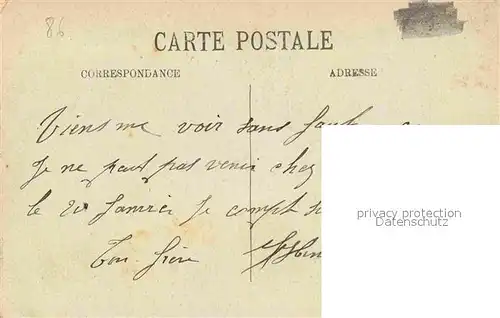 86
CARTE POSTALE
CORRESPONDANCE
ADRESSE
Viens me voir sans faute
Je ne peut pas venir chez
le 20 Janvier Je compt
Ton frère
privacy protection
Datenschutz